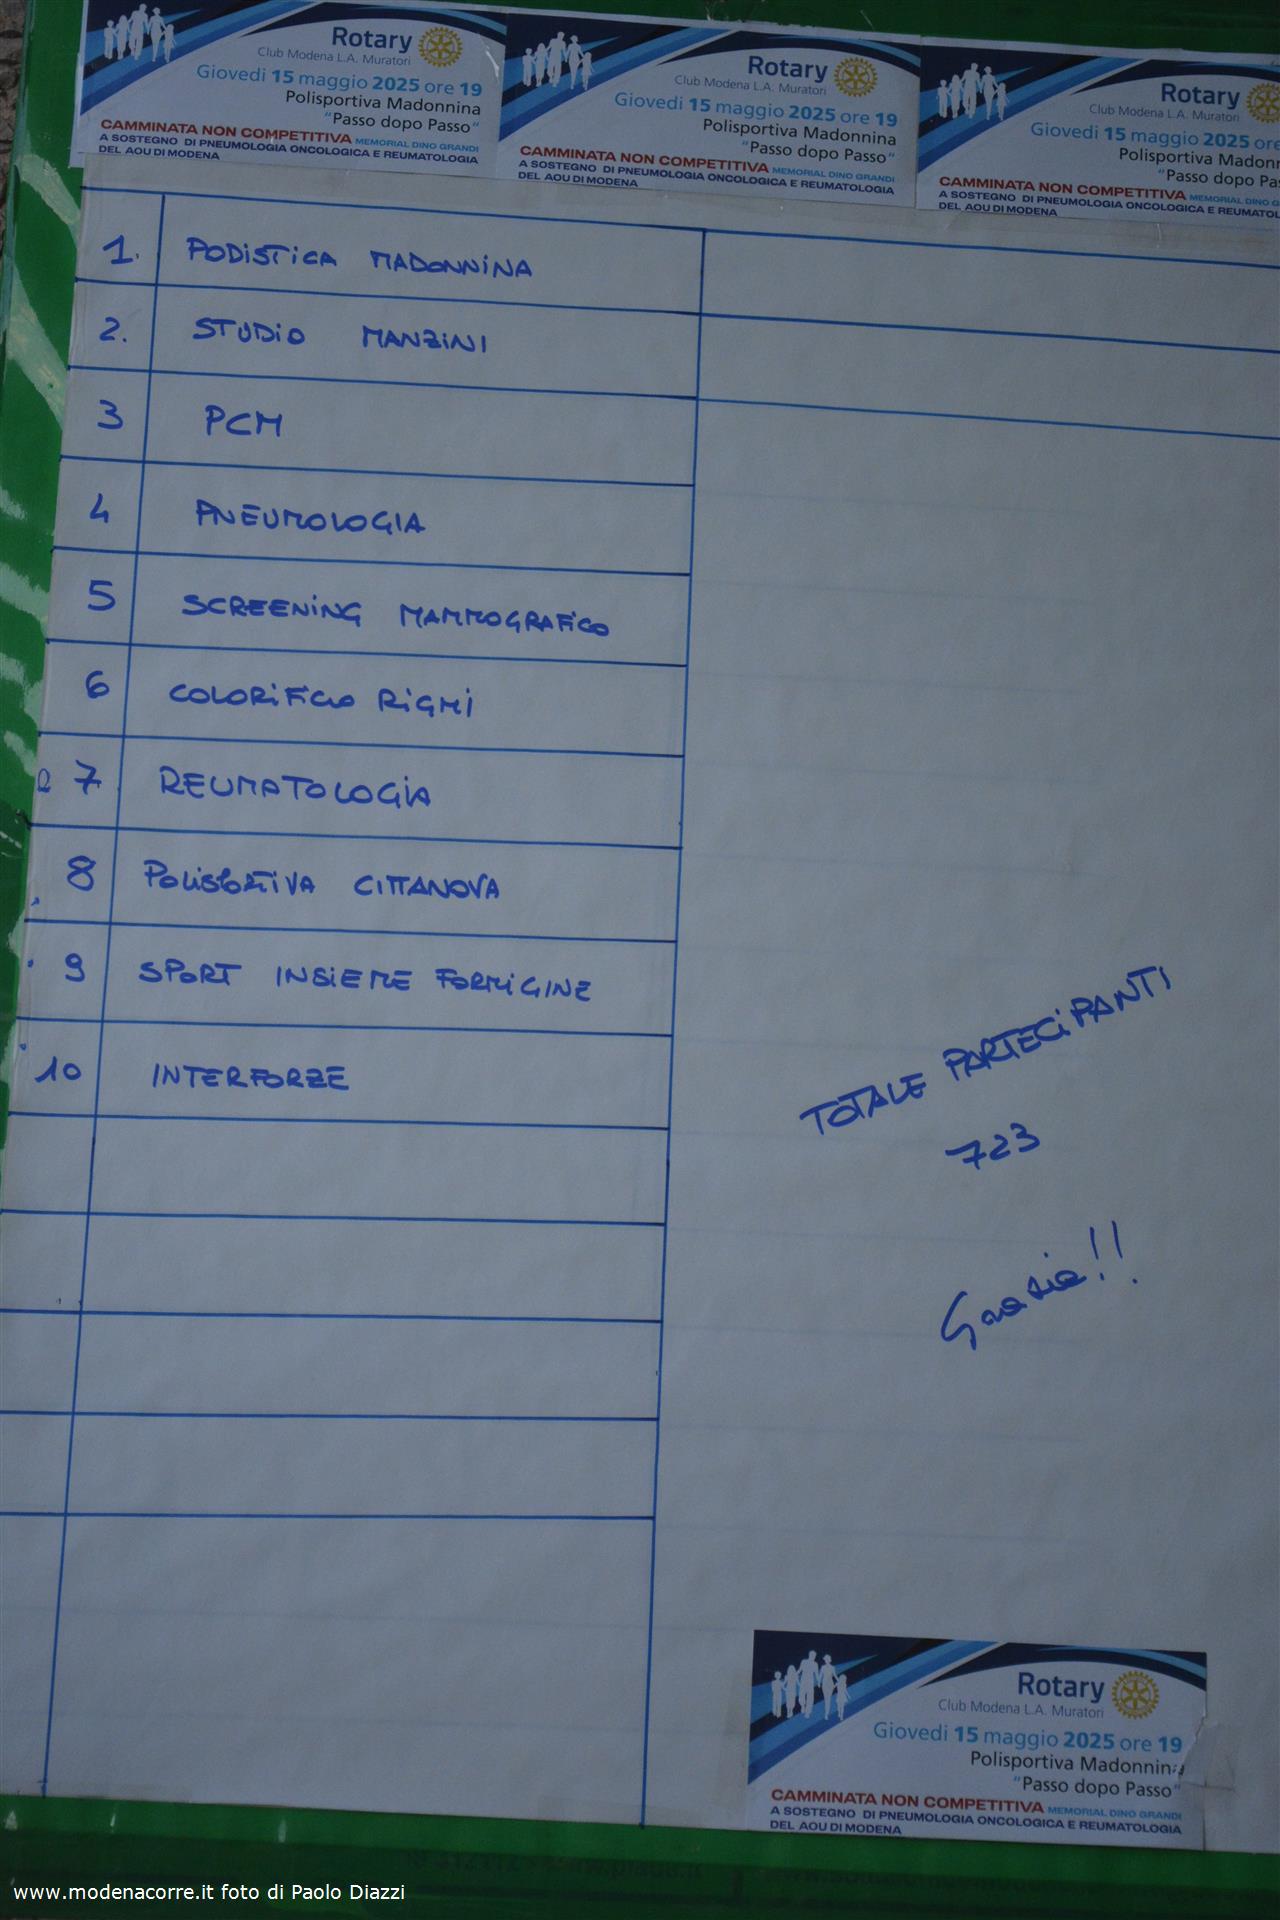 Rotary
Club Modena L.A. Muratori
Giovedi 15 maggio 2025 ore 19
Polisportiva Madonnina
"Passo dopo Passo"
CAMMINATA NON COMPETITIVA MEMORIAL DINO GRANDI
A SOSTEGNO DI PNEUMOLOGIA ONCOLOGICA E REUMATOLOGIA
DEL AOU DI MODENA
Rotary
Club Modena L.A. Muratori
Giovedi 15 maggio 2025 ore 19
Polisportiva Madonnina
"Passo dopo Passo"
CAMMINATA NON COMPETITIVA MEMORIAL DINO GRANDI
A SOSTEGNO DI PNEUMOLOGIA ONCOLOGICA E REUMATOLOGIA
DEL AOU DI MODENA
Rotary
Club Modena L.A. Muratori
Giovedi 15 maggio 2025 ore
Polisportiva Madonn
"Passo dopo Pas
CAMMINATA NON COMPETITIVA MEMORIAL DINO G
A SOSTEGNO DI PNEUMOLOGIA ONCOLOGICA E REUMATOL
DEL AOU DI MODENA
1. PODISTICA MADONNINA
2. STUDIO MANZINI
3 PCM
4 PNEUMOLOGIA
5 SCREENING MAMMOGRAFICO
6 COLORIFICIO RIGHI
7 REUMATOLOGIA
8 POLISPORTIVA CITTANOVA
9 SPORT INSIEME FORMIGINE
10 INTERFORZE
TOTALE PARTECIPANTI
723
Grazie!!
Rotary
Club Modena L.A. Muratori
Giovedi 15 maggio 2025 ore 19
Polisportiva Madonnina
"Passo dopo Passo"
CAMMINATA NON COMPETITIVA MEMORIAL DINO GRANDI
A SOSTEGNO DI PNEUMOLOGIA ONCOLOGICA E REUMATOLOGIA
DEL AOU DI MODENA
www.modenacorre.it foto di Paolo Diazzi